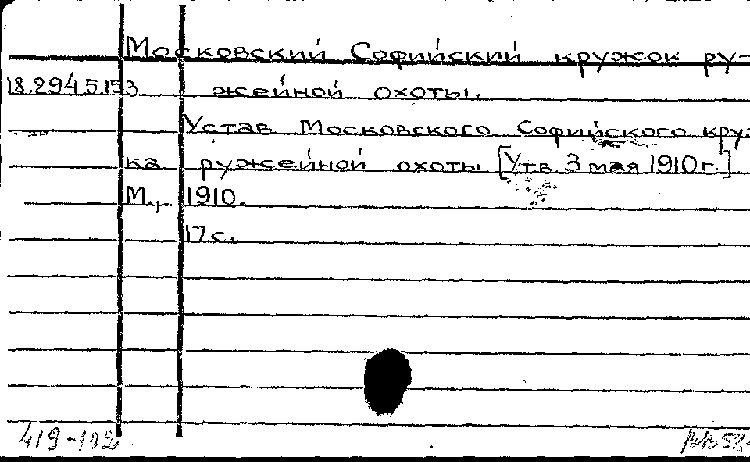 Московский Софийский кружок ру-
18.294.5.153 жейной охоты.
Устав Московского Софийского круж-
ка ружейной охоты [Утв. 3 мая 1910 г.]
М., 1910.
17 с.
419-102